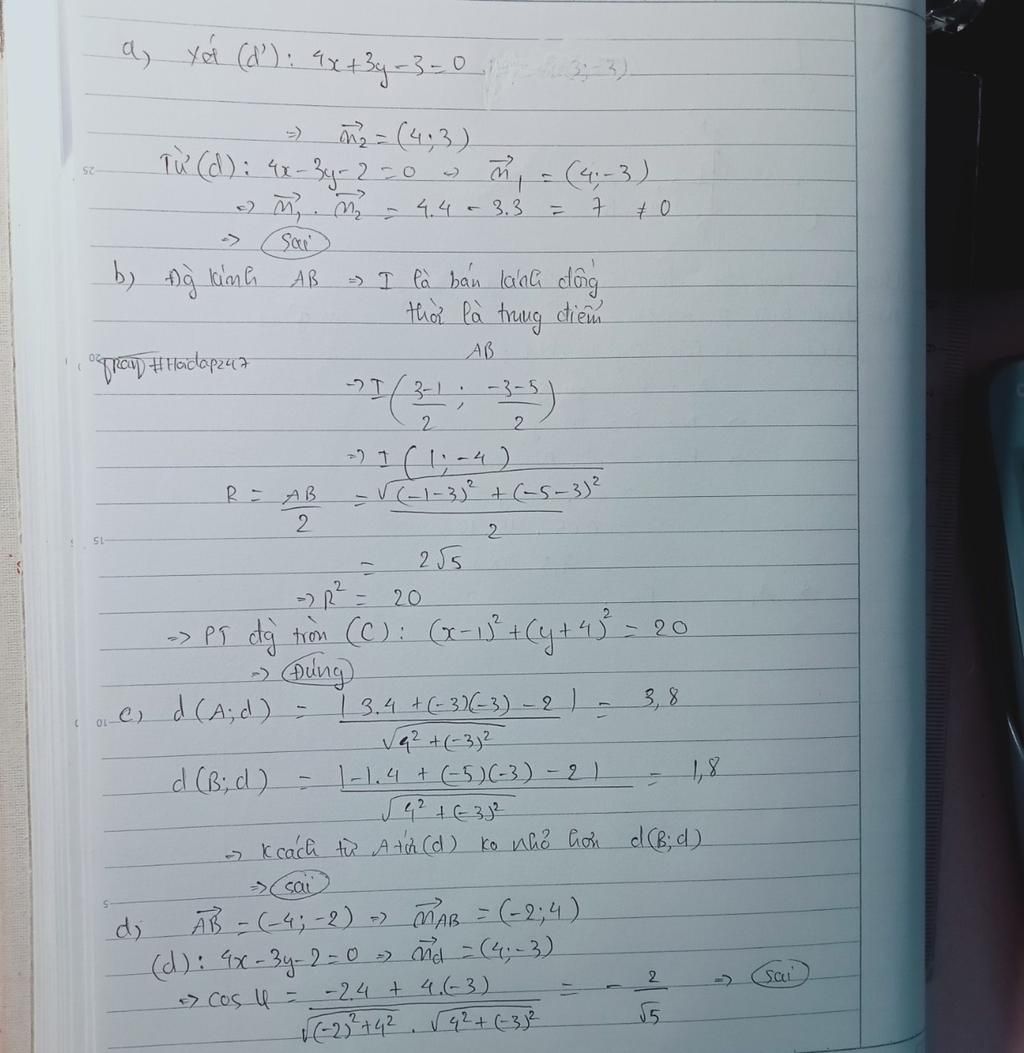 a) Xét (d'): 4x+3y-3=0
=> n₂ = (4;3)
Từ (d): 4x-3y-2=0 => n₁ = (4;-3)
=> n₁ . n₂ = 4.4 - 3.3 = 7 ≠ 0
=> Sai
b) Đg kính AB => I là bán kính đồng
thời là trung điểm
AB
#Hoidap247
=> I (3-1/2 ; -3-5/2)
=> I (1;-4)
R = AB/2 = √((-1-3)² + (-5-3)²)/2
= 2√5
=> R² = 20
=> PT đg tròn (C): (x-1)²+(y+4)² = 20
=> Đúng
c) d(A;d) = |3.4 + (-3)(-3) - 2|/√(4²+(-3)²) = 3,8
d(B;d) = |-1.4 + (-5)(-3) - 2|/√(4²+(-3)²) = 1,8
=> Kcách từ A tới (d) ko nhỏ hơn d(B;d)
=> Sai
d) AB = (-4;-2) => n_AB = (-2;4)
(d): 4x-3y-2=0 => n_d = (4;-3)
=> cos φ = -2.4 + 4.(-3)/√((-2)²+4²) . √(4²+(-3)²) = - 2/√5 => Sai